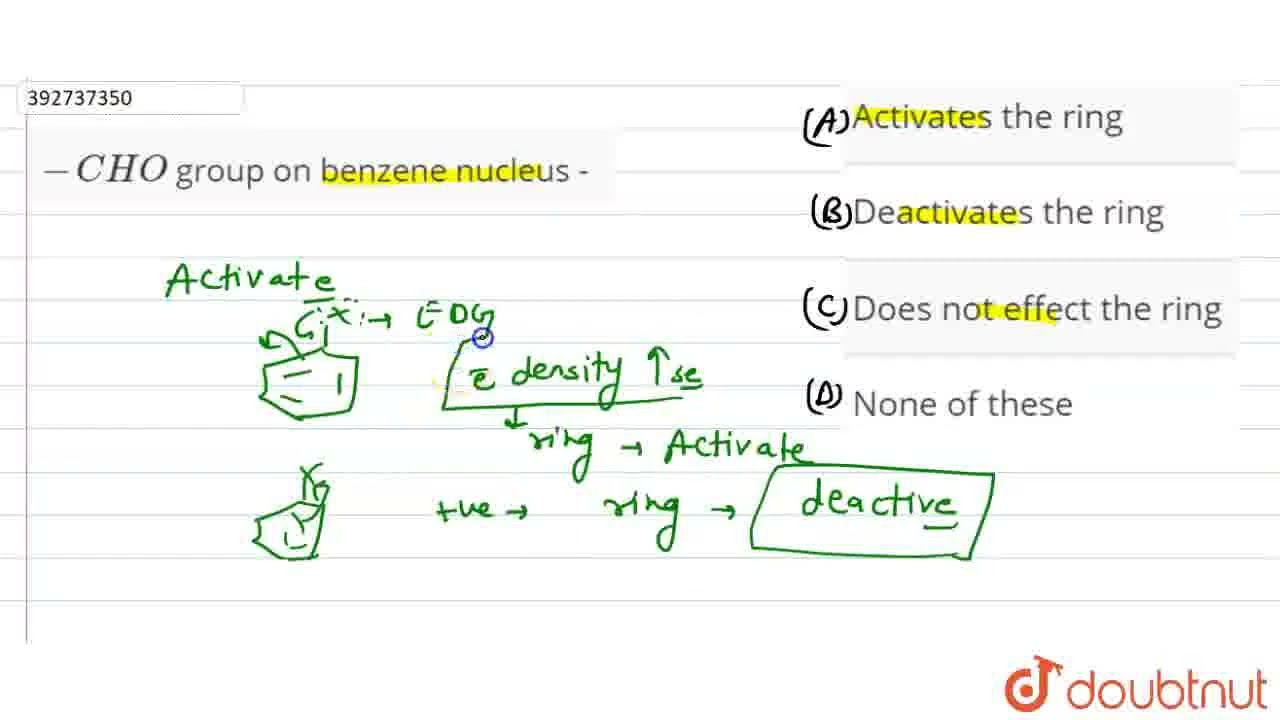 392737350
-CHO group on benzene nucleus -
(A) Activates the ring
(B) Deactivates the ring
(C) Does not effect the ring
(D) None of these
Activate
:X: → EDG
e density ↑se
ring → Activate
X
+ve → ring → deactive
doubtnut